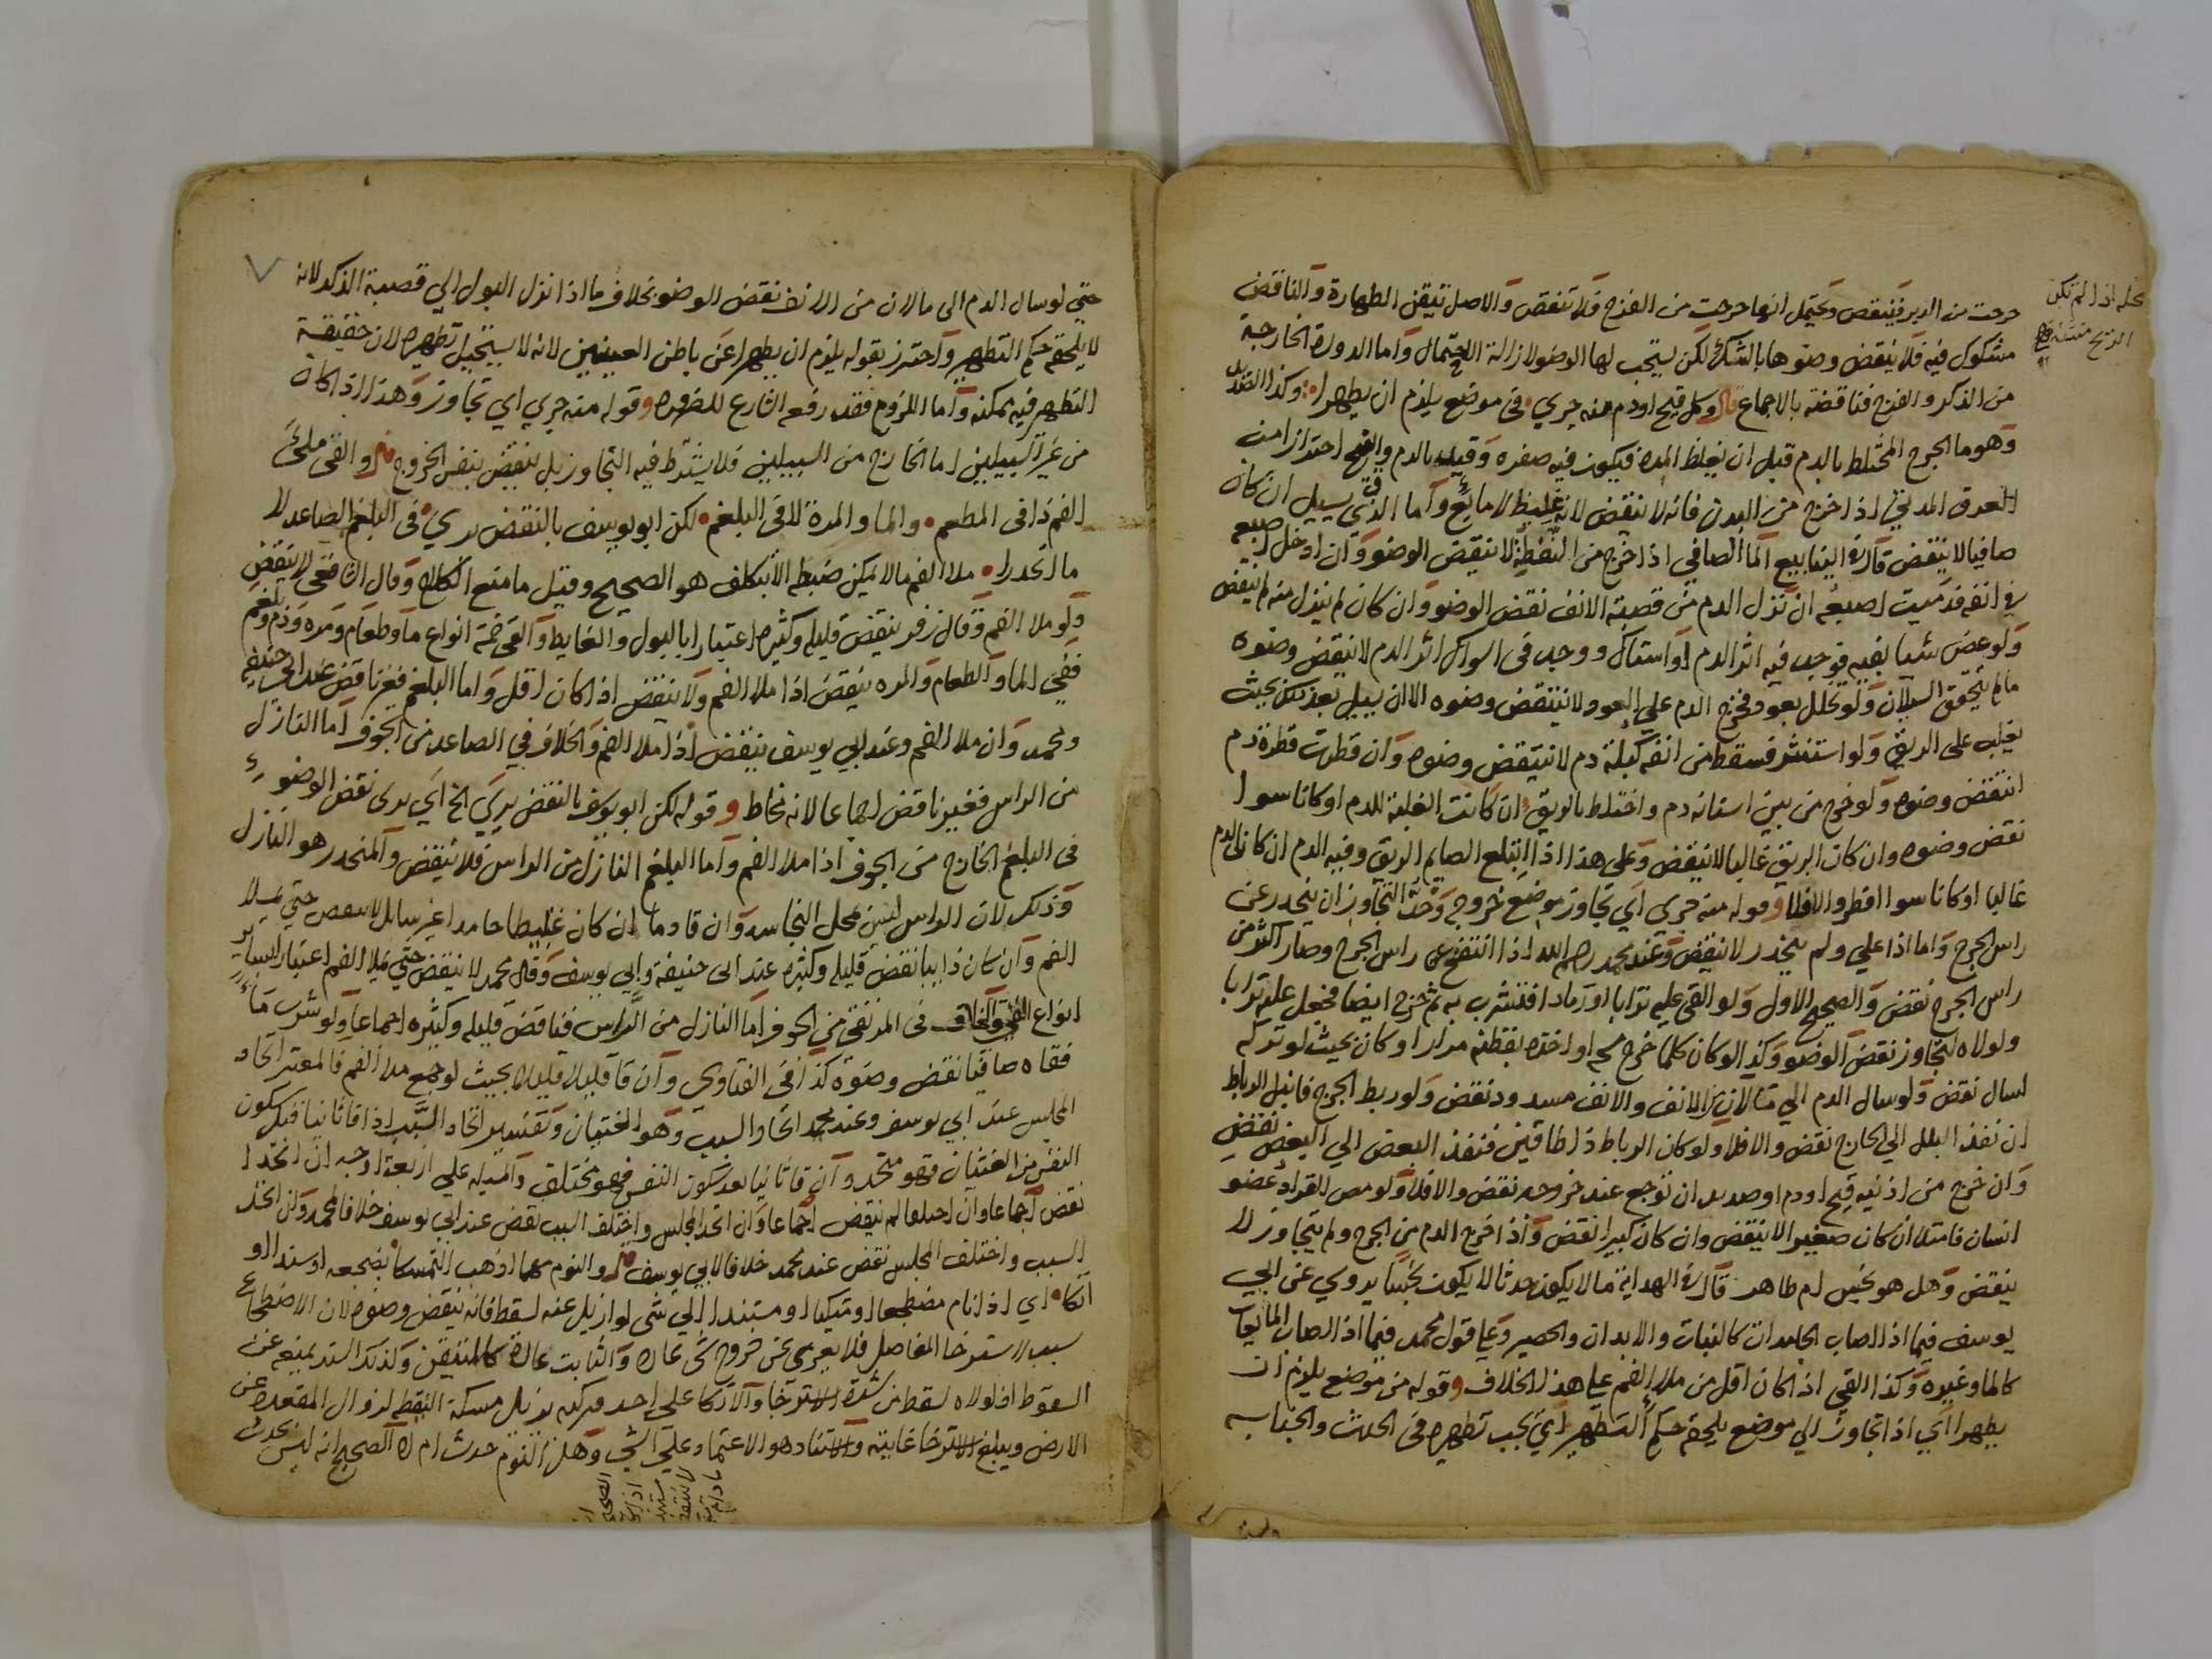 خرجت من الدبر فينقض ويحتمل انها خرجت من الفرج فلا تنقض والاصل تيقن الطهارة والناقض
مشكوك فيه فلا ينقض وضوها بالشك لكن يستحب لها الوضو لازالة الاحتمال واما الدودة الخارجة
من الذكر والفرج فناقضة بالاجماع قال وكل قيح او دم منه جري في موضع يلزم ان يطهرا وكذا الصديد
وهو ما الجرح المختلط بالدم قبل ان يغلظ المدة فيكون فيه صفره وقيد بالدم والقيح احترازا من
العرق المدني اذا خرج من البدن فانه لا ينقض لانه غليظ لا مايع واما الذي يسيل ان كان
صافيا لا ينقض قال في الينابيع الما الصافي اذا خرج من النفطة لا ينقض الوضو وان ادخل اصبعه
في انفه فدميت اصبعه ان نزل الدم من قصبة الانف نقض الوضو وان كان لم ينزل منه لم ينقض
ولو عض شيا بفيه فوجد فيه اثر الدم او استاك ووجد في السواك اثر الدم لا ينقض وضوه
مالم يتحقق السيلان ولو تخلل بعود فخرج الدم علي العود لا ينتقض وضوه الا ان يسيل بعد ذلك بحيث
يغلب على الريق ولو استنثر فسقط من انفه كبلة دم لا ينتقض وضوه وان قطرت قطرة دم
انتقض وضوه ولو خرج من بين اسنانه دم واختلط بالريق ان كانت الغلبة للدم او كانا سوا
نقض وضوه وان كان الريق غالبا لا ينقض وعلى هذا اذا ابتلع الصايم الريق وفيه الدم ان كان الدم
غالبا او كانا سوا افطر والا فلا وقوله منه جري اي تجاوز موضع خروجه وحد التجاوز ان ينحدر عن
راس الجرح واما اذا علي ولم ينحدر لا ينقض وعند محمد رحمه الله اذا انتفخ على راس الجرح وصار اكثر من
راس الجرح نقض والصحيح الاول ولو القى عليه ترابا او رماد افتشرب به ثم خرج ايضا فجعل عليه ترابا
ولولاه لتجاوز نقض الوضو وكذا لو كان كلما خرج مسحه او اخذه بقطنه مرارا وكان بحيث لو تركه
لسال نقض ولو سال الدم الي مالان من الانف والانف مسدود نقض ولو ربط الجرح فابتل الرباط
ان نفذ البلل الي الخارج نقض والا فلا ولو كان الرباط ذا طاقين فنفذ البعض الي البعض نقض
وان خرج من اذنيه قيح او دم او صديد ان توجع عند خروجه نقض والا فلا ولو مص القراد عضو
انسان فامتلا ان كان صغيرا لا ينقض وان كان كبيرا نقض واذا خرج الدم من الجرح ولم يتجاوز لا
ينقض وهل هو نجس ام طاهر قال في الهداية مالا يكون حدثا لا يكون نجسا يروي عن ابي
يوسف فيما اذا اصاب الجامدات كالثياب والابدان والحصير وعلي قول محمد فيما اذا اصاب المايعات
كالما وغيره وكذا القي اذا كان اقل من ملا الفم علي هذا الخلاف وقوله من موضع يلزم ان
يطهرا اي اذا تجاوز الي موضع يلحقه حكم التطهير اي يجب تطهيره في الحدث والجنابه
حتي لو سال الدم الى مالان من الانف نقض الوضو بخلاف ما اذا نزل البول الي قصبة الذكر لانه
لا يلحقه حكم التطهير واحترز بقوله يلزم ان يطهرا عن باطن العينين لانه لا يستحيل تطهيره لان حقيقة
التطهر فيه ممكنه واما اللزوم فقد رفعه الشارع للضروره وقوله منه جري اي تجاوز وهذا اذا كان
من غير السبيلين اما الخارج من السبيلين فلا يشترط فيه التجاوز بل ينقض بنفس الخروج قال والقي ملئ
الفم ذا في المطعم والما والمرة لا في البلغم لكن ابو يوسف بالنقض يري في البلغم الصاعد لا
ما انحدرا ملا الفم مالا يمكن ضبطه الا بتكلف هو الصحيح وقيل ما منع الكلام وقال الشافعي لا ينقض
ولو ملا الفم وقال زفر ينقض قليله وكثيره اعتبارا بالبول والغايط والقي خمة انواع ما وطعام ومره ودم وبلغم
ففي الما والطعام والمره ينقض اذا ملا الفم ولا ينقض اذا كان اقل واما البلغم فغير ناقض عند ابي حنيفه
ومحمد وان ملا الفم وعند ابي يوسف ينقض اذا ملا الفم والخلاف في الصاعد من الجوف اما النازل
من الراس فغير ناقض اجماعا لانه مخاط وقوله لكن ابو يوسف بالنقض يري الخ اي يرى نقض الوضوء
في البلغم الخارج من الجوف اذا ملا الفم واما البلغم النازل من الراس فلا ينقض والمنحدر هو النازل
وذلك لان الراس ليس محل النجاسه وان قا دما ان كان غليظا جامدا غير سايل لا ينقض حتي يملا
الفم وان كان ذايبا نقض قليله وكثيره عند ابي حنيفة وابي يوسف وقال محمد لا ينقض حتي يملا الفم اعتبارا بساير
انواع القي والخلاف في المرتقي من الجوف اما النازل من الراس فناقض قليله وكثيره اجماعا ولو شرب ماء
فقاه صافيا نقض وضوه كذا في الفتاوي وان قا قليلا قليلا بحيث لو جمع ملا الفم فالمعتبر اتحاد
المجلس عند ابي يوسف وعند محمد اتحاد السبب وهو الغثيان وتفسير اتحاد السبب اذا قا ثانيا قبل سكون
النفس من الغثيان فهو متحد وان قا ثانيا بعد سكون النفس فهو مختلف والمسيله علي اربعة اوجه ان اتحدا
نقض اجماعا وان اختلفا لم ينقض اجماعا وان اتحد المجلس واختلف السبب نقض عند ابي يوسف خلافا لمحمد وان اتحد
السبب واختلف المجلس نقض عند محمد خلافا لابي يوسف قال والنوم مهما اذهب التمسكا بضجعه او سند او
اتكا اي اذا نام مضطجعا او متكيا او مستندا الي شي لو ازيل عنه لسقط فانه ينقض وضوه لان الاضطجاع
سبب لاسترخا المفاصل فلا يعري عن خروج شي عادة والثابت عادة كالمتيقن وكذلك السند يمنعه عن
السقوط اذ لولاه لسقط من شدة الاسترخا والاتكا على احد وركيه يزيل مسكة اليقظه لزوال المقعده عن
الارض ويبلغ الاسترخا غايته والاستناد هو الاعتماد علي الشي وهل النوم حدث ام لا الصحيح انه ليس بحدث